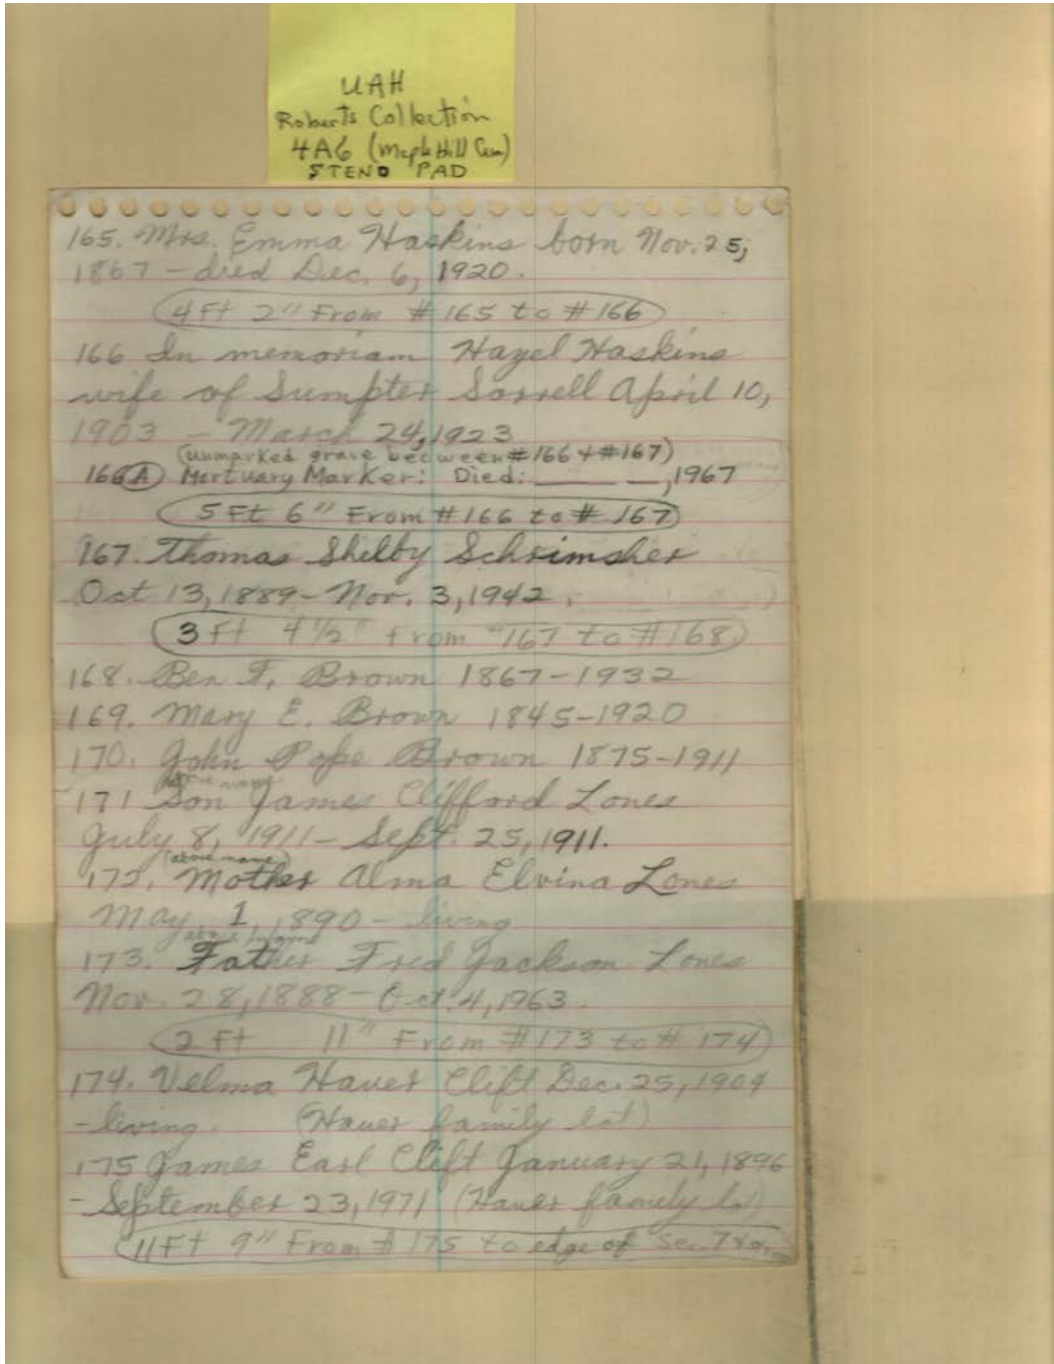 UAH
Roberts Collection
4A6 (Maple Hill Cem)
STENO PAD
165. Mrs. Emma Haskins born Nov. 25,
1867 - died Dec. 6, 1920.
4 Ft 2" From #165 to #166
166 In memoriam Hazel Haskins
wife of Sumpter Sorrell April 10,
1903 - March 24, 1923
(unmarked grave between #166 + #167)
166(A) Mortuary Marker: Died: _____ __, 1967
5 Ft 6" From #166 to #167
167. Thomas Shelby Schrimsher
Oct 13, 1889 - Nov. 3, 1942.
3 Ft 4 1/2" From "167 to #168
168. Ben F. Brown 1867-1932
169. Mary E. Brown 1845-1920
170. John Pope Brown 1875-1911
(above name)
171 Son James Clifford Lones
July 8, 1911 - Sept. 25, 1911.
(above name)
172. Mother Alma Elvina Lones
May 1, 1890 - living
above name
173. Father Fred Jackson Lones
Nov. 28, 1888 - Oct. 4, 1963.
2 Ft 11" From #173 to #174
174. Velma Hauer Clift Dec. 25, 1904
- living. (Hauer family lot)
175 James Earl Clift January 21, 1896
- September 23, 1971 (Hauer family lot)
11 Ft 9" From #175 to edge of Sec. 7